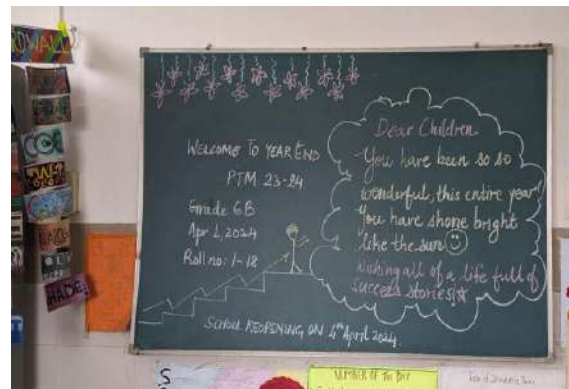 WELCOME TO YEAR END
PTM 23-24
Grade 6B
Apr 1, 2024
Roll no: 1-18
Dear Children
You have been so so
wonderful, this entire year!
You have shone bright
like the sun
Wishing all of a life full of
success stories!
SCHOOL REOPENING ON 4th April 2024.
HADE!
NUMBER OF THE DAY